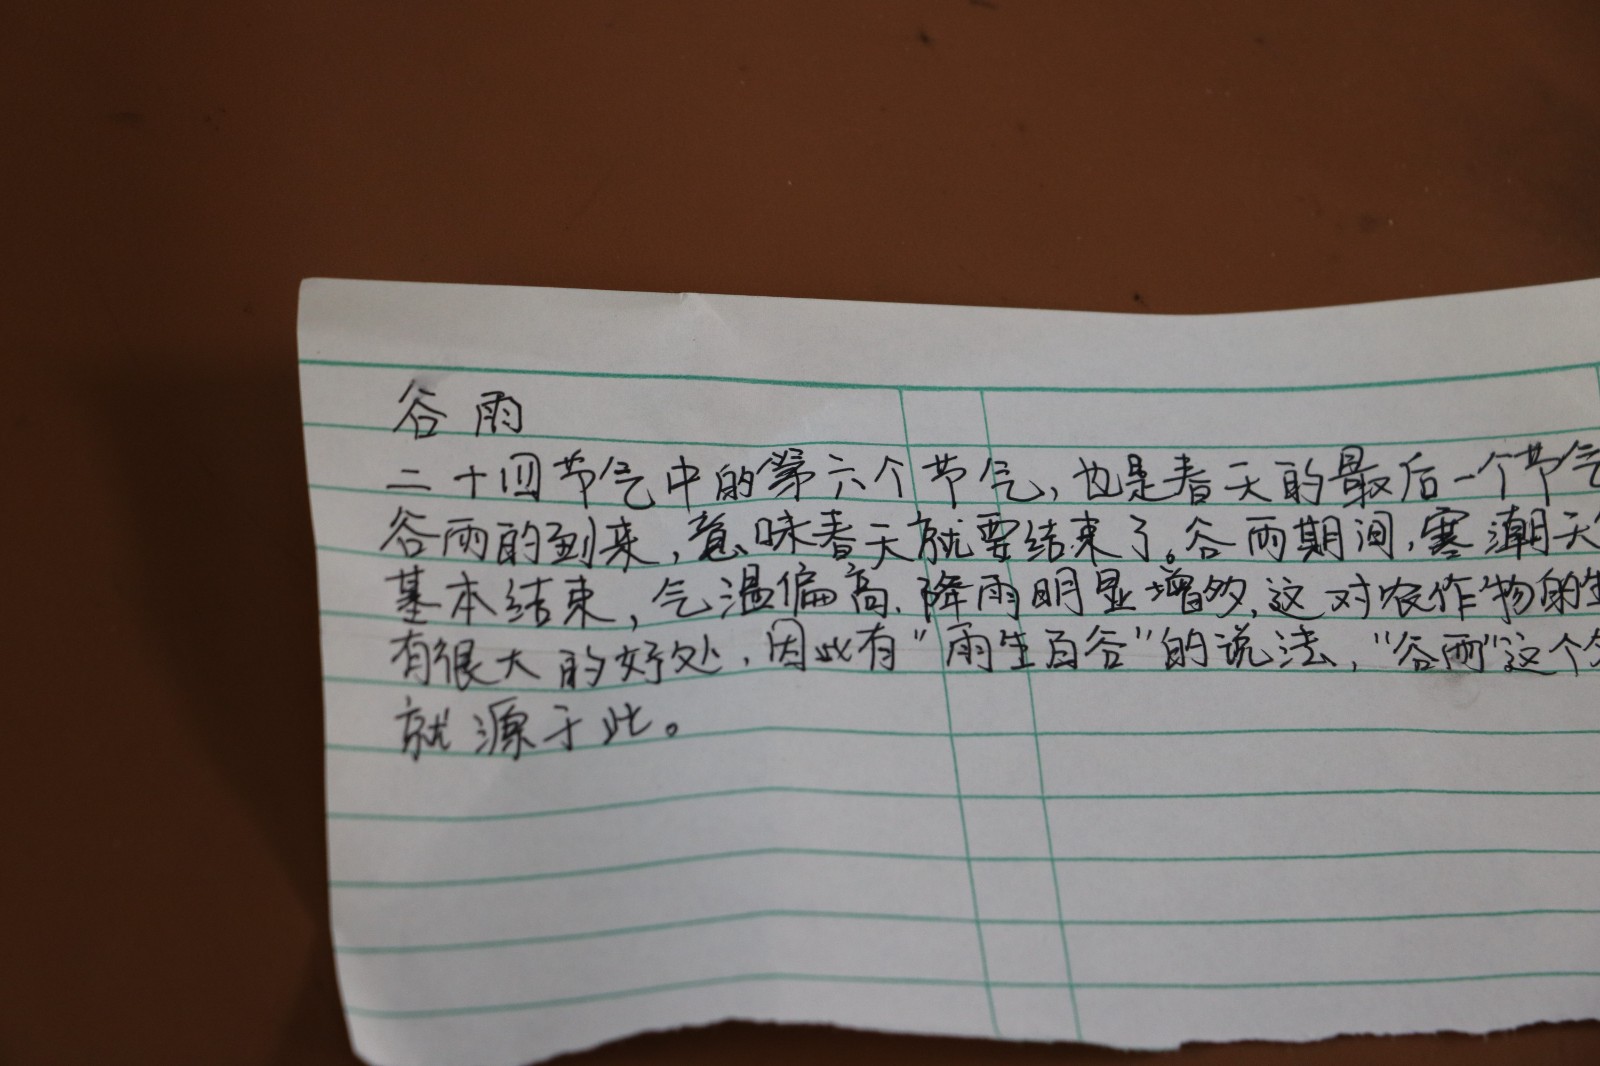 谷雨
二十四节气中的第六个节气,也是春天的最后一个节气
谷雨的到来,意味春天就要结束了。谷雨期间,寒潮天
基本结束,气温偏高、降雨明显增多,这对农作物的生
有很大的好处,因此有“雨生百谷”的说法,“谷雨”这个
就源于此。